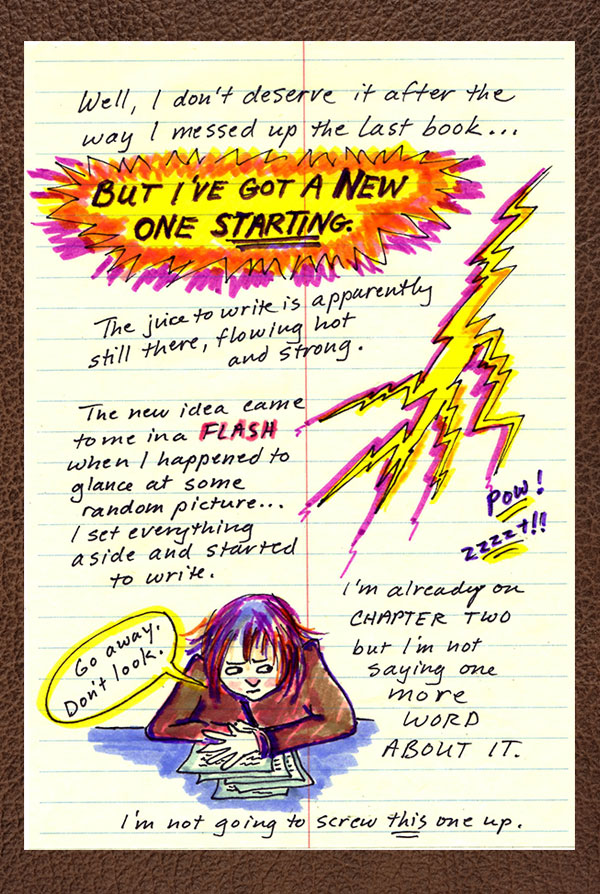 Well, I don't deserve it after the
way I messed up the last book...
BUT I'VE GOT A NEW
ONE STARTING.
The juice to write is apparently
still there, flowing hot
and strong.
The new idea came
to me in a FLASH
when I happened to
glance at some
random picture...
I set everything
aside and started
to write.
POW!
ZZZZt!!
I'm already on
CHAPTER TWO
but I'm not
saying one
more
WORD
ABOUT IT.
Go away.
Don't look.
I'm not going to screw this one up.